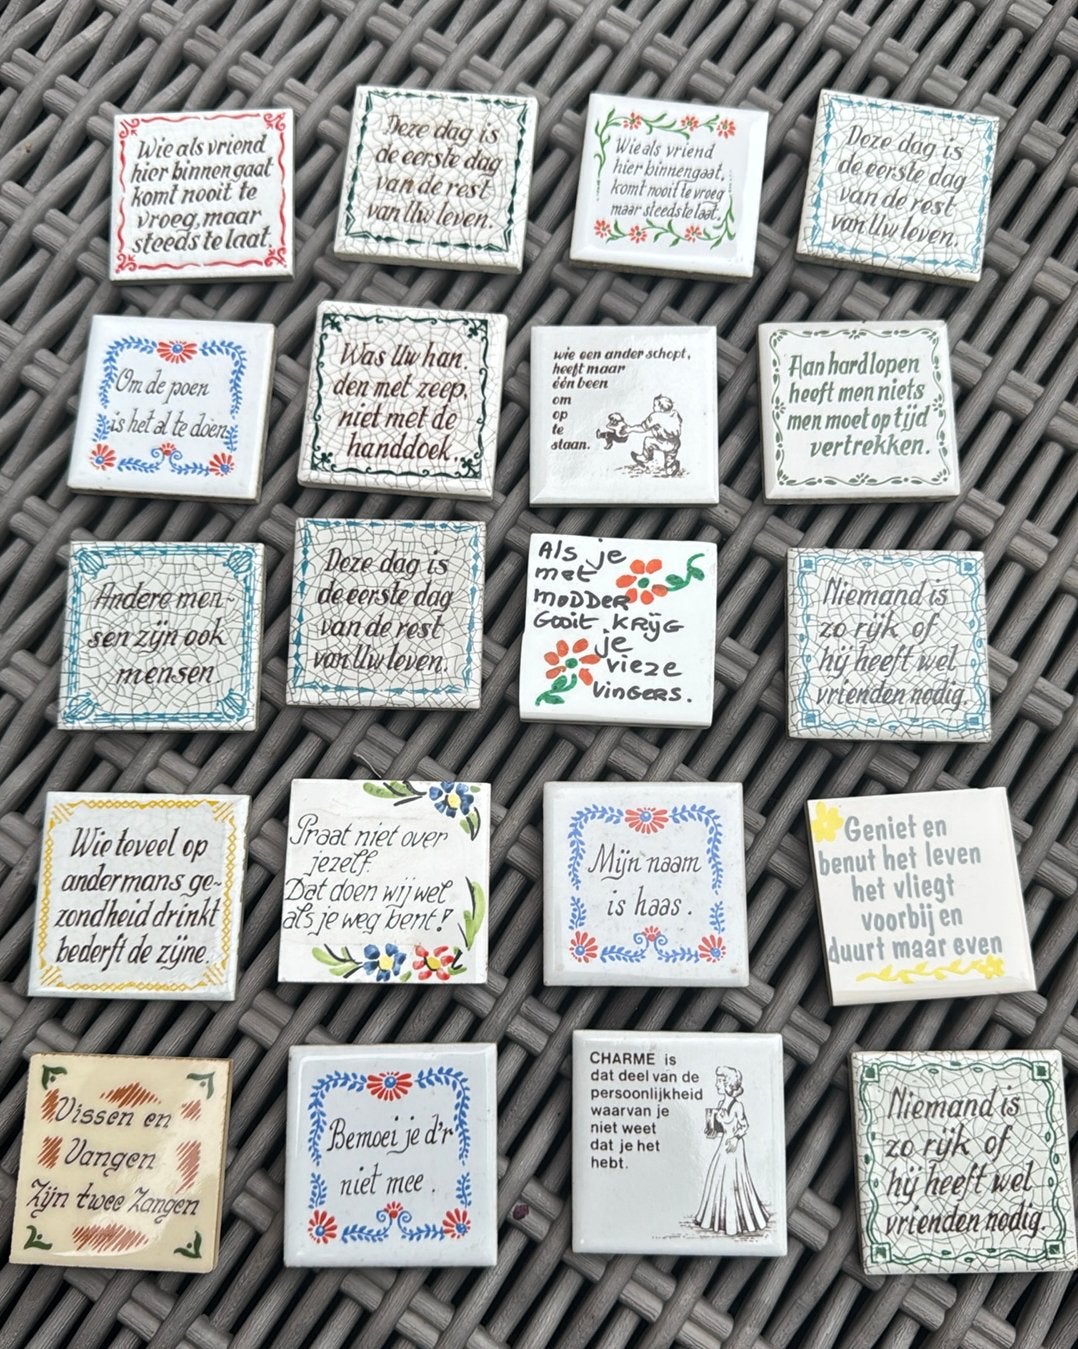 Wie als vriend
hier binnen gaat
komt nooit te
vroeg, maar
steeds te laat.
Deze dag is
de eerste dag
van de rest
van Uw leven.
Wie als vriend
hier binnengaat,
komt nooit te vroeg
maar steeds te laat.
Deze dag is
de eerste dag
van de rest
van Uw leven.
Om de poen
is het al te doen
Was Uw han.
den met zeep,
niet met de
handdoek.
wie een ander schopt,
heeft maar
één been
om
op
te
staan.
Aan hardlopen
heeft men niets
men moet op tijd
vertrekken.
Andere men-
sen zijn ook
mensen
Deze dag is
de eerste dag
van de rest
van Uw leven.
Als je
met
MODDER
Gooit KRijG
je
vieze
vingers.
Niemand is
zo rijk of
hij heeft wel
vrienden nodig.
Wie teveel op
andermans ge-
zondheid drinkt
bederft de zijne.
Praat niet over
jezelf.
Dat doen wij wel
als je weg bent!
Mijn naam
is haas.
Geniet en
benut het leven
het vliegt
voorbij en
duurt maar even
Vissen en
Vangen
Zijn twee Zangen
Bemoei je d'r
niet mee.
CHARME is
dat deel van de
persoonlijkheid
waarvan je
niet weet
dat je het
hebt.
Niemand is
zo rijk of
hij heeft wel
vrienden nodig.